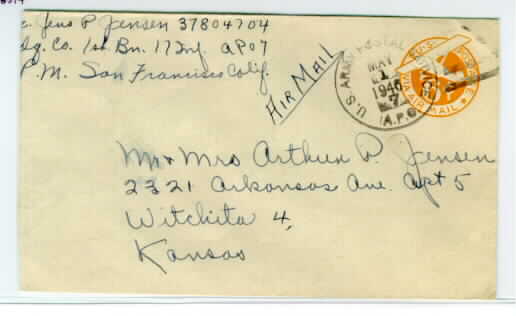 Jens P Jensen 37804704
Hq. Co. 1st Bn. 17 Inf. APO 7
P.M. San Francisco Calif.
AIR MAIL
U.S. ARMY POSTAL SERVICE
MAY
1
1946
7
A.P.O.
U.S.
VIA AIR MAIL
6
Mr & Mrs Arthur P. Jensen
2321 Arkansas Ave. Apt 5
Witchita 4,
Kansas